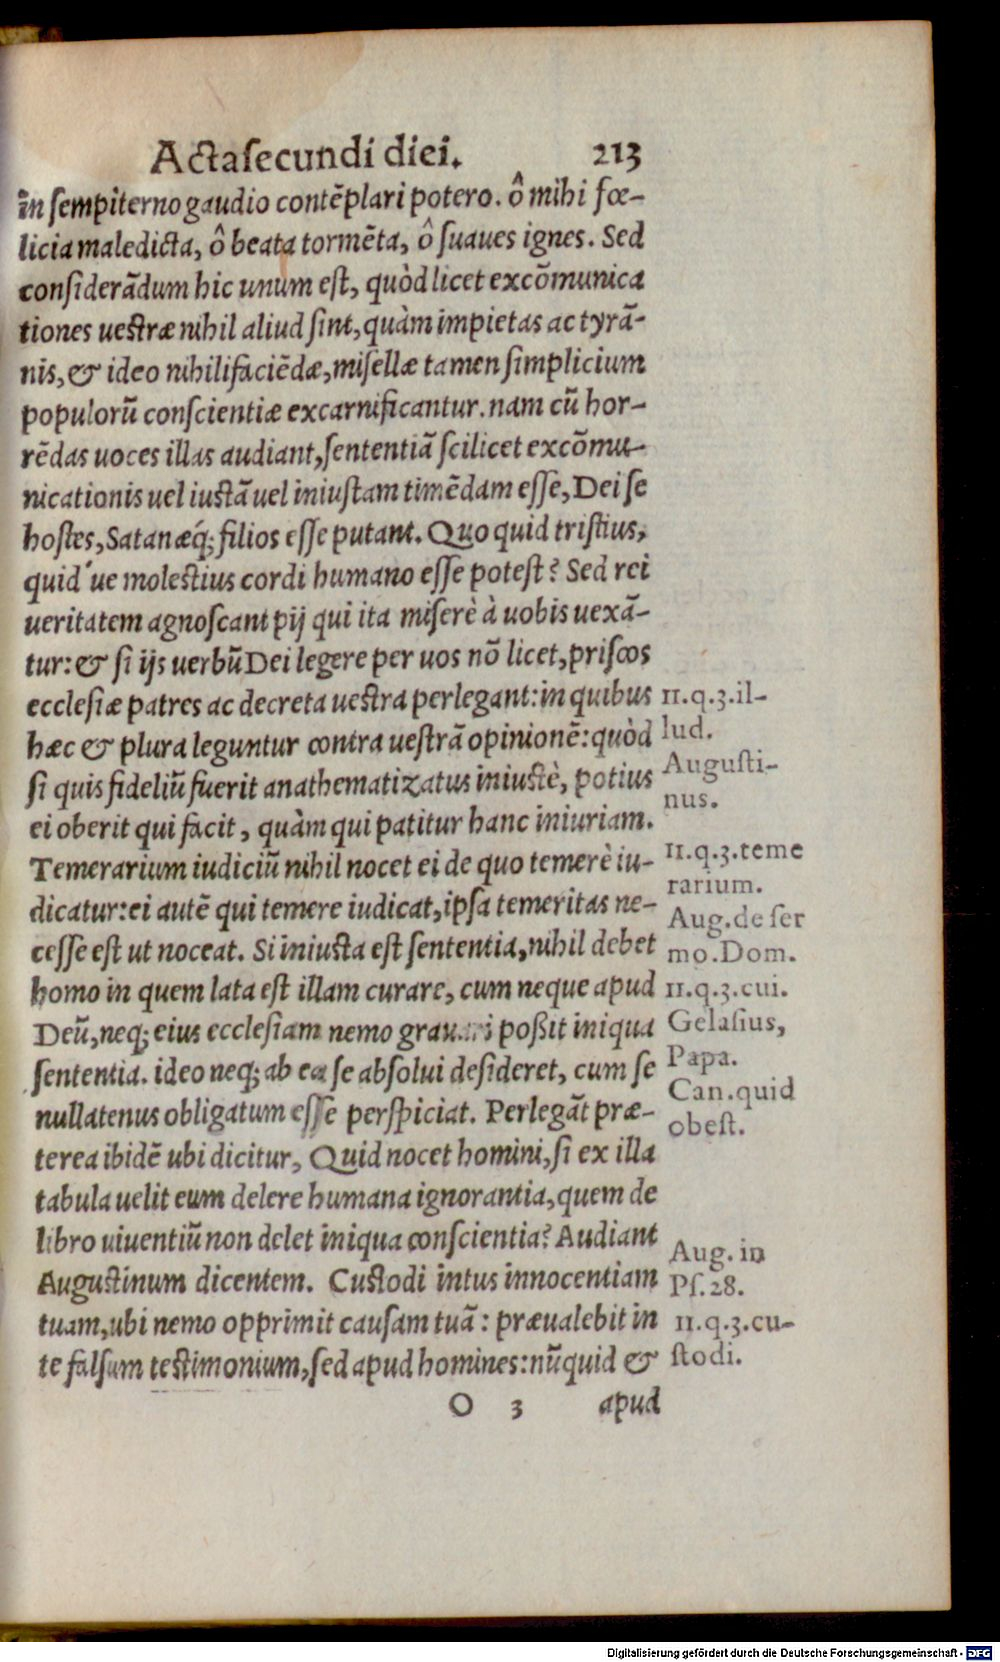 Acta secundi diei. 213
in sempiterno gaudio contẽplari potero. ô mihi fœ-
licia maledicta, ô beata tormẽta, ô suaues ignes. Sed
considerãdum hic unum est, quòd licet excõmunica
tiones uestræ nihil aliud sint, quàm impietas ac tyrã-
nis, & ideo nihilifaciẽdæ, misellæ tamen simplicium
populorũ conscientiæ excarnificantur. nam cũ hor-
rẽdas uoces illas audiant, sententiã scilicet excõmu-
nicationis uel iustã uel iniustam timẽdam esse, Dei se
hostes, Satanæq́; filios esse putant. Quo quid tristius,
quid´ue molestius cordi humano esse potest? Sed rei
ueritatem agnoscant pij qui ita miserè à uobis uexã-
tur: & si ijs uerbũ Dei legere per uos nõ licet, priscos
ecclesiæ patres ac decreta uestra perlegant: in quibus
hæc & plura leguntur contra uestrã opinionẽ: quòd
si quis fideliũ fuerit anathematizatus iniustè, potius
ei oberit qui facit, quàm qui patitur hanc iniuriam.
Temerarium iudiciũ nihil nocet ei de quo temerè iu-
dicatur: ei autẽ qui temere iudicat, ipsa temeritas ne-
cesse est ut noceat. Si iniusta est sententia, nihil debet
homo in quem lata est illam curare, cum neque apud
Deũ, neq; eius ecclesiam nemo grauari poßit iniqua
sententia. ideo neq; ab ea se absolui desideret, cum se
nullatenus obligatum esse perspiciat. Perlegãt præ-
terea ibidẽ ubi dicitur, Quid nocet homini, si ex illa
tabula uelit eum delere humana ignorantia, quem de
libro uiuentiũ non delet iniqua conscientia? Audiant
Augustinum dicentem. Custodi intus innocentiam
tuam, ubi nemo opprimit causam tuã: præualebit in
te falsum testimonium, sed apud homines: nũquid &
O 3 apud
11.q.3.il-
lud.
Augusti-
nus.
11.q.3.teme
rarium.
Aug. de ser
mo. Dom.
11.q.3.cui.
Gelasius,
Papa.
Can. quid
obest.
Aug. in
Ps. 28.
11.q.3.cu-
stodi.
Digitalisierung gefördert durch die Deutsche Forschungsgemeinschaft - DFG